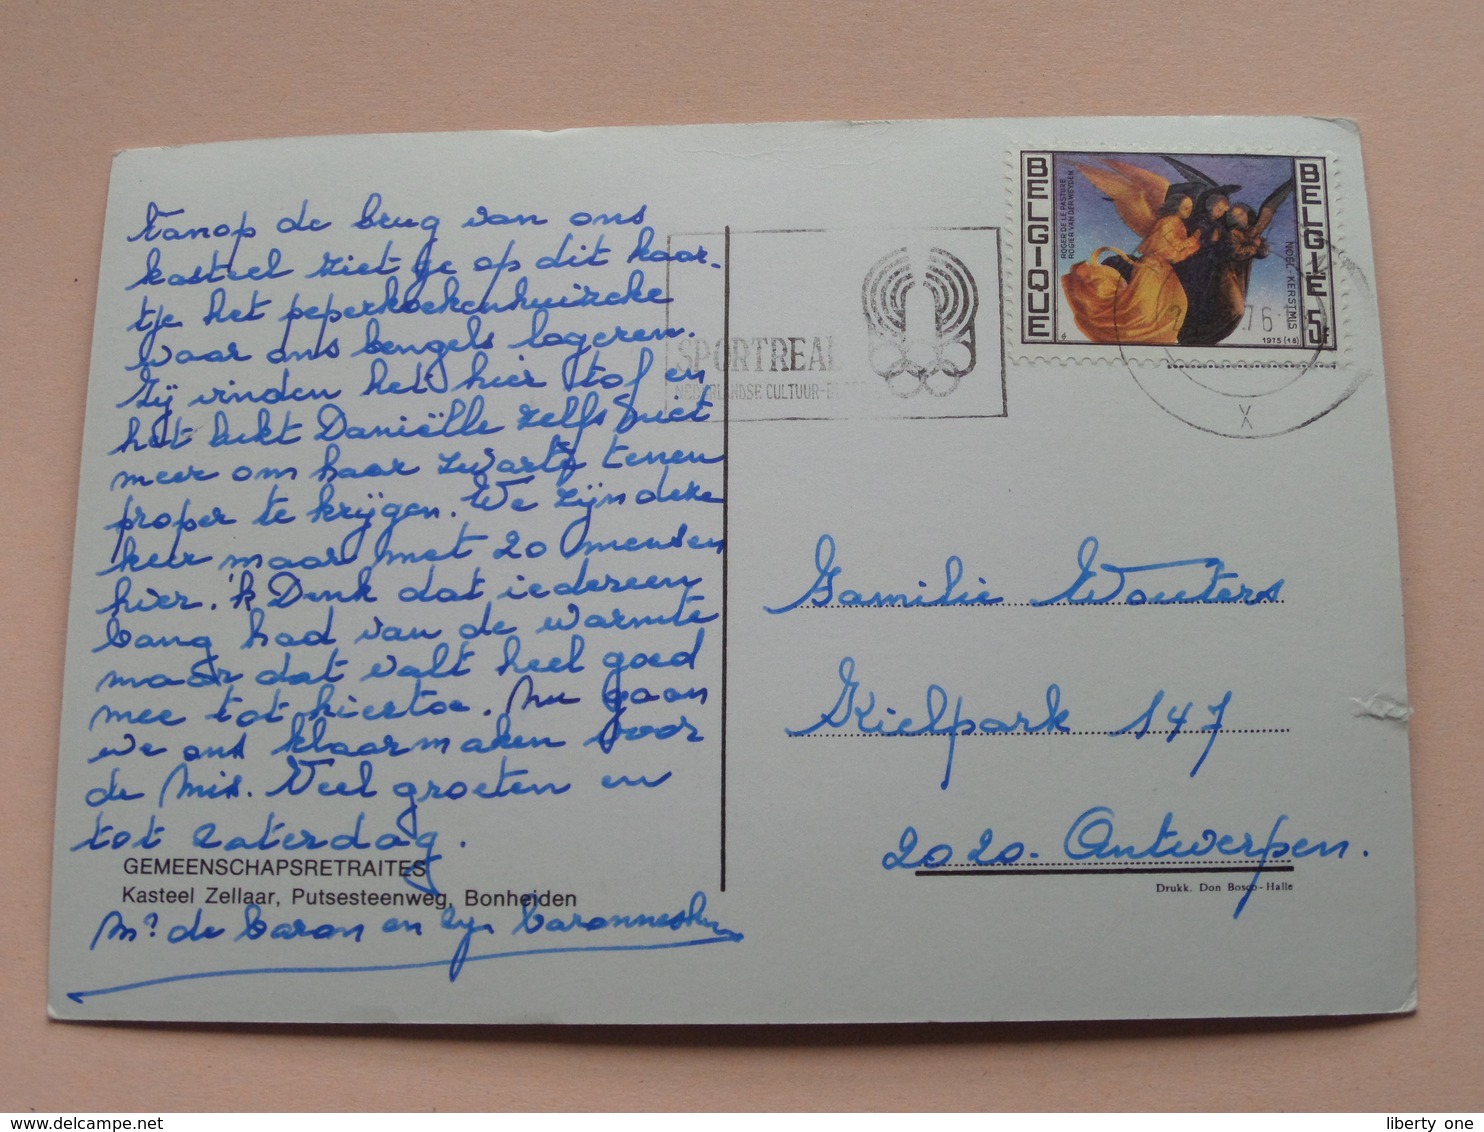 Vanop de brug van ons
kasteel ziet ge op dit kaar-
tje het peperkoekenhuizeke
waar ons bengels logeren.
Zij vinden het hier tof en
het lukt Daniëlle zelfs niet
meer om haar zwarte tenen
proper te krijgen. We zijn deze
keer maar met 20 mensen
hier. 'k Denk dat iedereen
bang had van de warmte
maar dat valt heel goed
mee tot hiertoe. Nu gaan
we ons klaarmaken voor
de Mis. Veel groeten en
tot zaterdag.
GEMEENSCHAPSRETRAITES
Kasteel Zellaar, Putsesteenweg, Bonheiden
Mr de baron en zijn baronnesken
SPORTREAL
NEDERLANDSE CULTUUR-
BELGIQUE
ROGER DE LE PASTURE
ROGIER VAN DER WEYDEN
NOËL-KERSTMIS
BELGIË 5F
1975 (18)
76
X
Familie Wouters
Kielpark 147
2020. Antwerpen.
Drukk. Don Bosco-Halle
liberty one